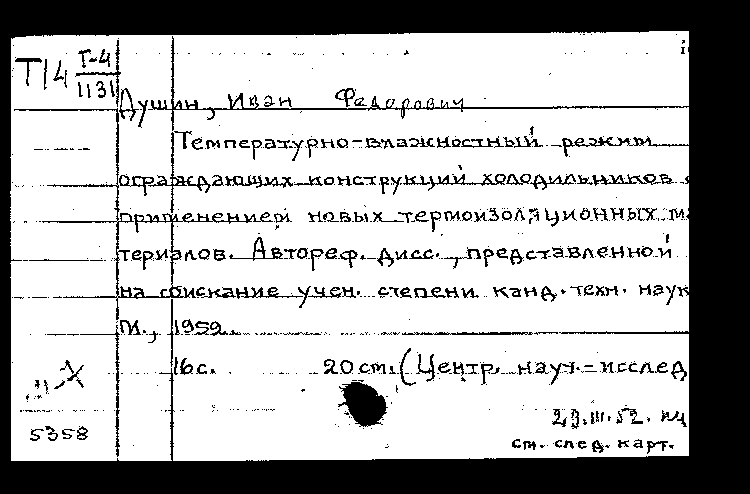 Т14 Т-4
1131
Душин, Иван Федорович
Температурно-влажностный режим
ограждающих конструкций холодильников с
применением новых термоизоляционных ма
териалов. Автореф. дисс., представленной
на соискание учен. степени канд. техн. наук
М., 1959.
16с. 20 см. (Центр. науч.-исслед
5358
см. след. карт.